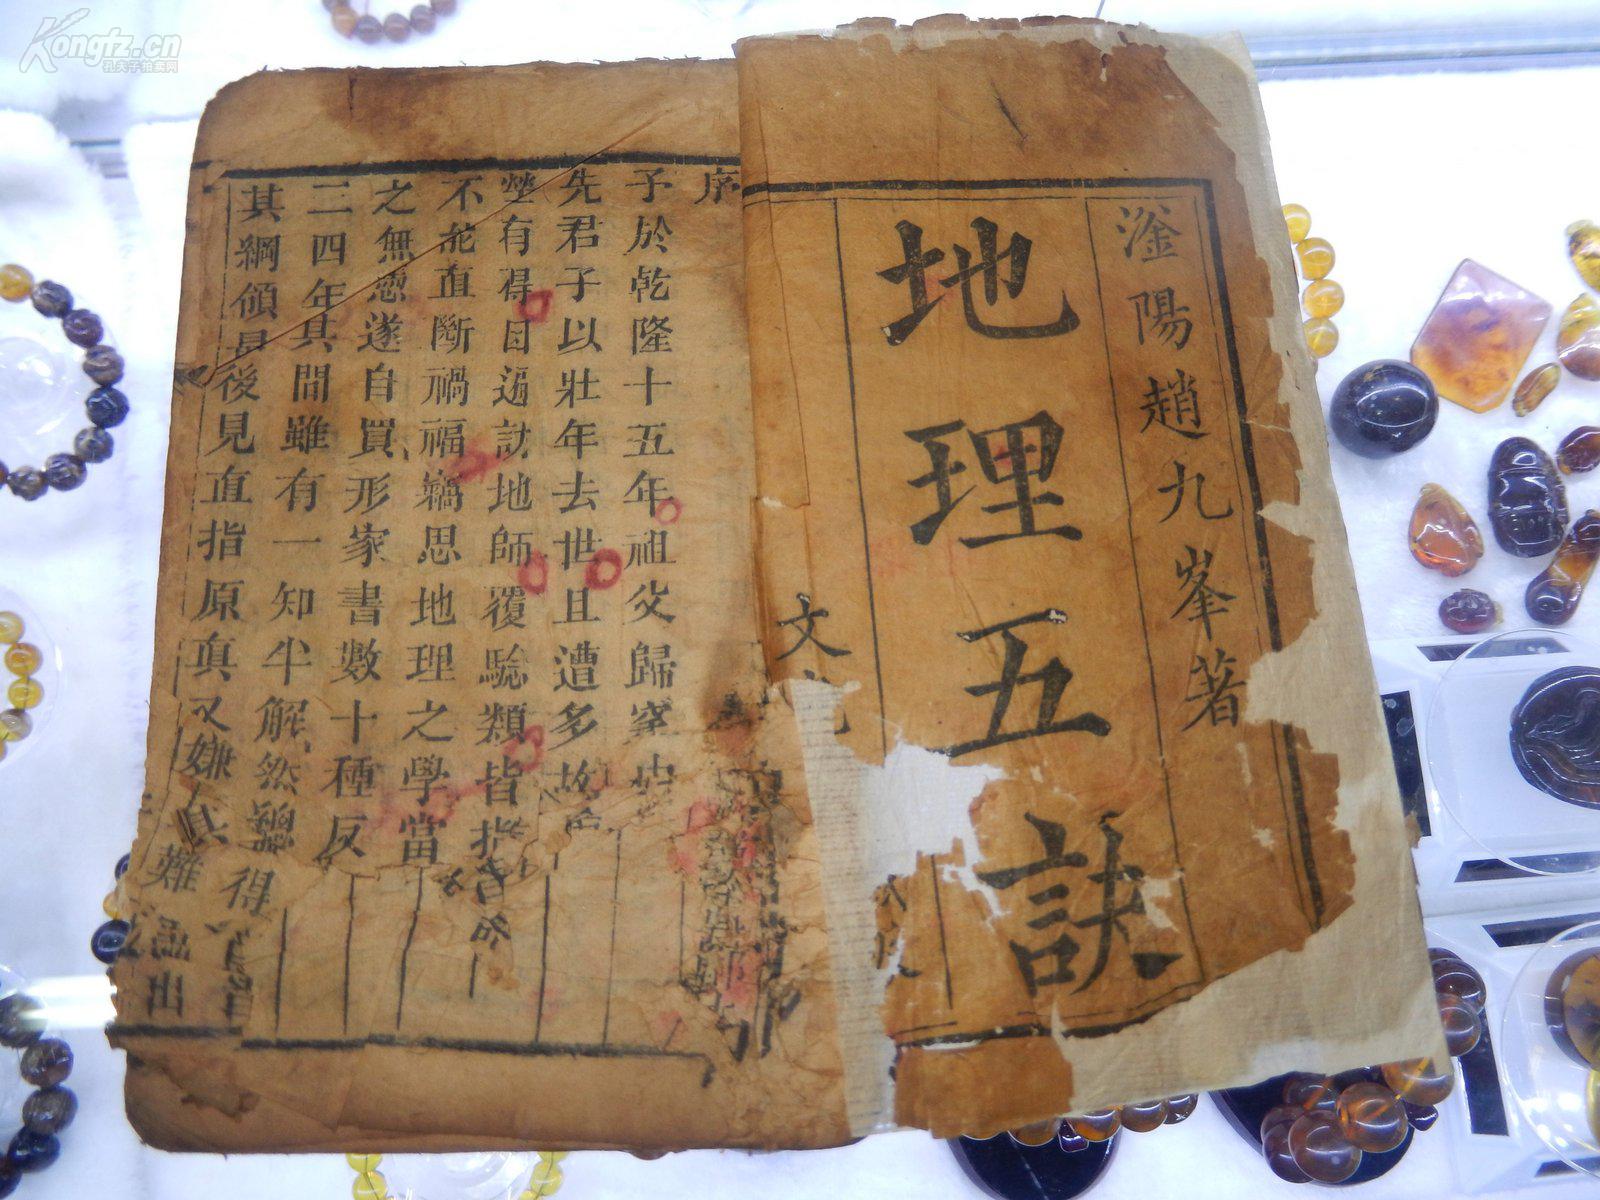 Kongfz.cn
孔夫子拍卖网
滏陽趙九峯著
地理五訣
文
序
予於乾隆十五年祖父歸窀
先君子以壯年去世且遭多故
塋有得目遍訪地師覆驗類皆指
不能直斷禍福竊思地理之學當
之無憑遂自買形家書數十種反
三四年其間雖有一知半解然
其綱領最後見直指原真又嫌其難
得
出